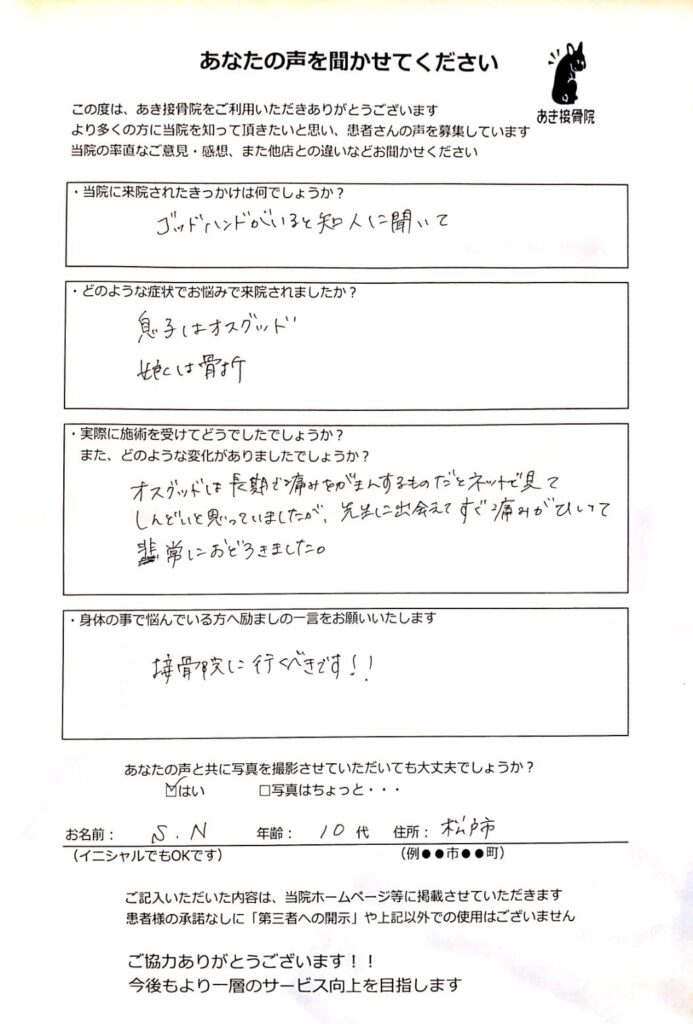 あなたの声を聞かせてください
あき接骨院
この度は、あき接骨院をご利用いただきありがとうございます
より多くの方に当院を知って頂きたいと思い、患者さんの声を募集しています
当院の率直なご意見・感想、また他店との違いなどお聞かせください
・当院に来院されたきっかけは何でしょうか？
ゴッドハンドがいると知人に聞いて
・どのような症状でお悩みで来院されましたか？
息子はオスグッド
娘は骨折
・実際に施術を受けてどうでしたでしょうか？
また、どのような変化がありましたでしょうか？
オスグッドは長期で痛みをがまんするものだとネットで見て
しんどいと思っていましたが、先生に出会えてすぐ痛みがひいて
非常におどろきました。
・身体の事で悩んでいる方へ励ましの一言をお願いいたします
接骨院に行くべきです!!
あなたの声と共に写真を撮影させていただいても大丈夫でしょうか？
☑はい □写真はちょっと・・・
お名前： S.N 年齢： 10 代 住所： 松戸市
（イニシャルでもOKです） （例●●市●●町）
ご記入いただいた内容は、当院ホームページ等に掲載させていただきます
患者様の承諾なしに「第三者への開示」や上記以外での使用はございません
ご協力ありがとうございます！！
今後もより一層のサービス向上を目指します